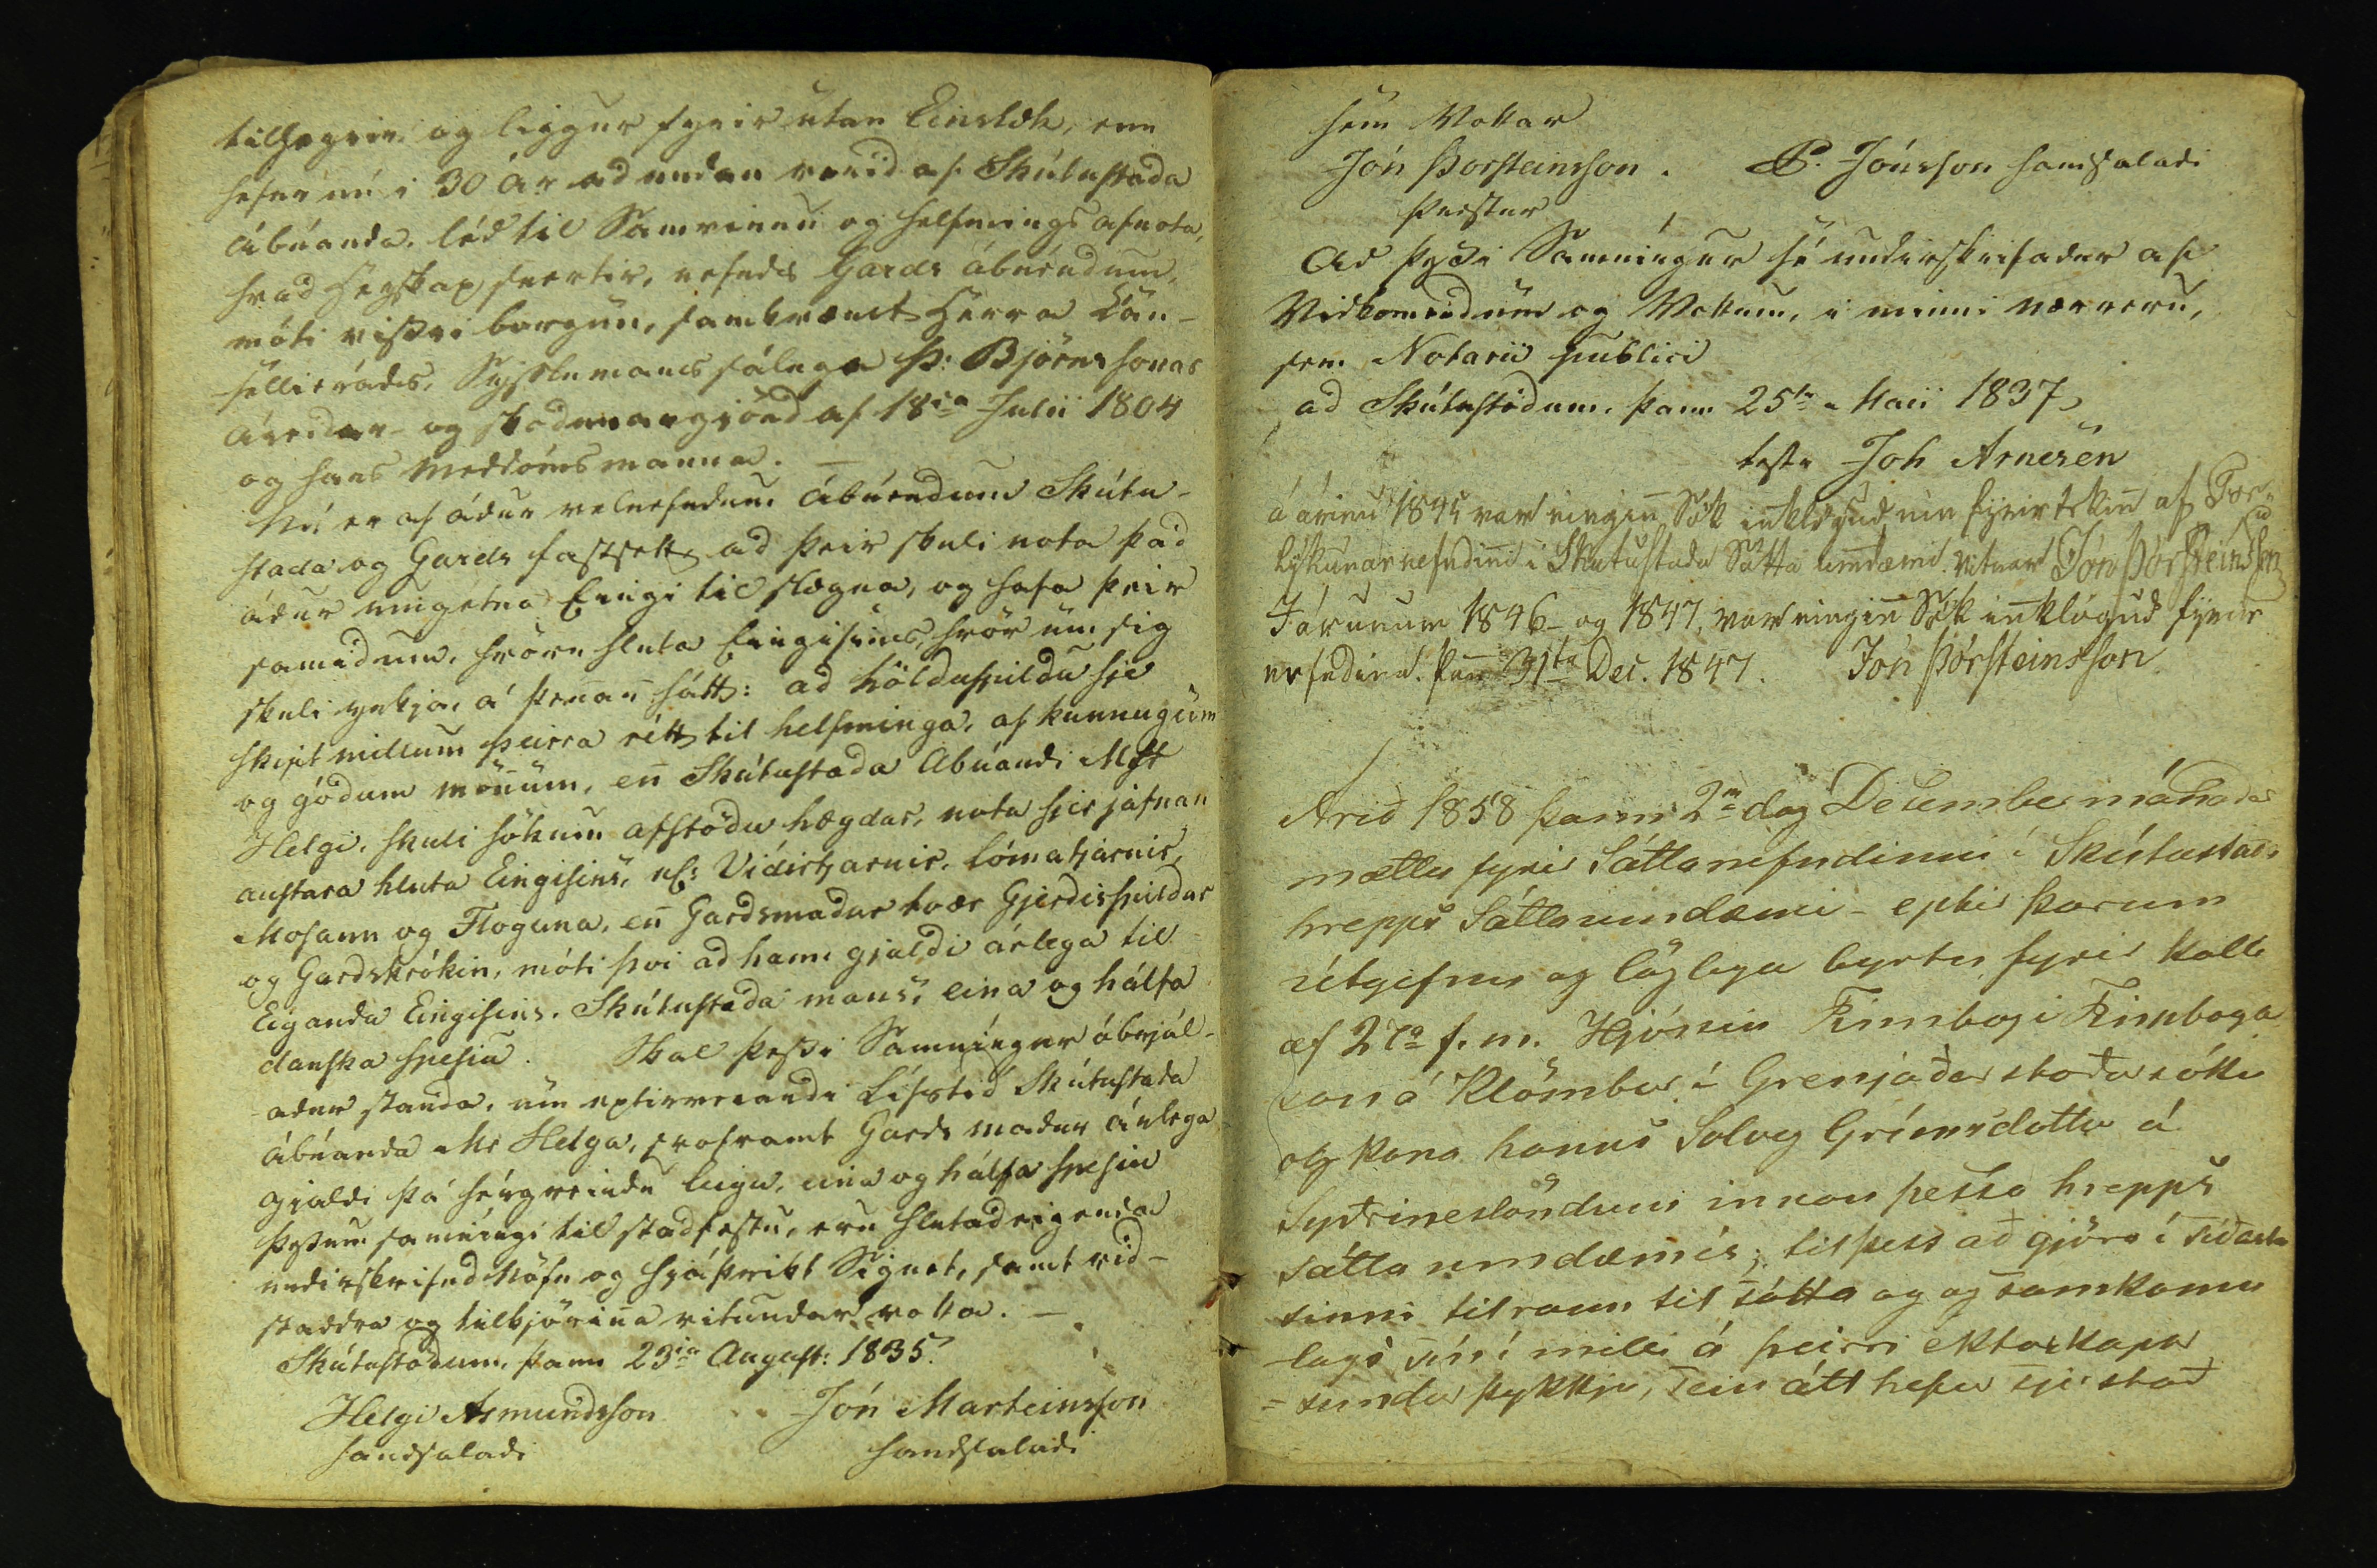 tilheyrir og liggur fyrir utan Einslæk, enn
hefur nú i 30 ár ad undan verid af Skútustada
Ábúanda, léd til Samvinnu og helfnings afnota,
hvad heyskap snertir, nefnds Gards ábúendum,
móti vissri borgun, samkvæmt Herra Kan-
sellieráds, Sysslumans sáluga Þ: Björnssonar
Áreidar- og skodunargjörd af 18da Julii 1804
og hans meddómsmanna. —
Nú er af ádur velnefndum Ábúendum Skútu-
stada og Gards fastsett, ad þeir skuli nota þad
ádur umgetna Eingi til slægna, og hafa þeir
samid um, hvörn hluta Eingisins, hvör um sig
skuli yrkja, á þenan hátt: ad hölduspildu sje
skipt millum þeirra rétt til helfninga, af kunnugum
og gódum mönum, en Skútustada Ábúandi Mr
Helgi, skuli sökum afstödu hægdar, nota sjer jafnan
austara hluta Eingisins, nl: Vidirtjarnir, Lómatjarnir,
Mosann og Floguna, en Gardsmadur tvær Gjerdisspildur
og Gardskrókin, móti því ad hann gjaldi árlega til
Eiganda Eingisins, Skútustada mans, eina og hálfa
danska spesiu. Skal þessi Samníngur óbrjál-
adur standa, um eptirverandi Lífstíd Skútustada
ábúanda Mr Helga, svoframt Gards madur árlega
gjaldi þá hérgreindu leigu, eina og hálfa spesiu
Þessum samníngi til stadfestu, eru hlutadeigenda
undirskrifud Nöfn og hjáþrikt Signet, samt vid-
staddra og tilkjörina vitundar votta. —
Skútustödum, þann 23ia August: 1835.
Helgi Asmundsson Jón Marteinsson
handsaladi handsaladi
sem Vottar
Jón Þorsteinsson. P. Jónsson handsaladi
Prestur
Ad þessi Samníngur sé undirskrifadur af
Vidkomendum og Vottum, i minni nærveru,
sem Notarii publici
ad Skútustödum, þann 25ta Maii 1837,
teste Joh Arnesen
á árinu 1845 var eingin Sök inklögud nie fyrirtekin af For-
lýkunarnefndini i Skutustada Sátta umdæmi. vitnar Jón Þorsteinsson
I árunum 1846- og 1847, var eingin Sök inklögud fyrir
nefndina. þan 31ta Dec. 1847. Jón Þorsteinsson
Arið 1858 þann 2n dag Decembermánaðar
mættu fyrir Sáttanefndinni í Skútustaða
hrepps Sáttaumdæmi - eptir þarum
útgifnu og löglega byrtu fyrir kalli
af 27a f. m. Hjónin Finnbogi Finnboga
son á Klömbur í Grenjaðarstaðarsókn
og kona hanns Solveg Grímsdottir á
Syðrineslöndum innan þessa hrepps
sátta umdæmis; til þess að gjöra í síðasta
sinni tilraun til sátta og og samkomu
lags sín í milli á þeirri ektaskapar
= sundur þykkju, sem átt hefur sjer stað